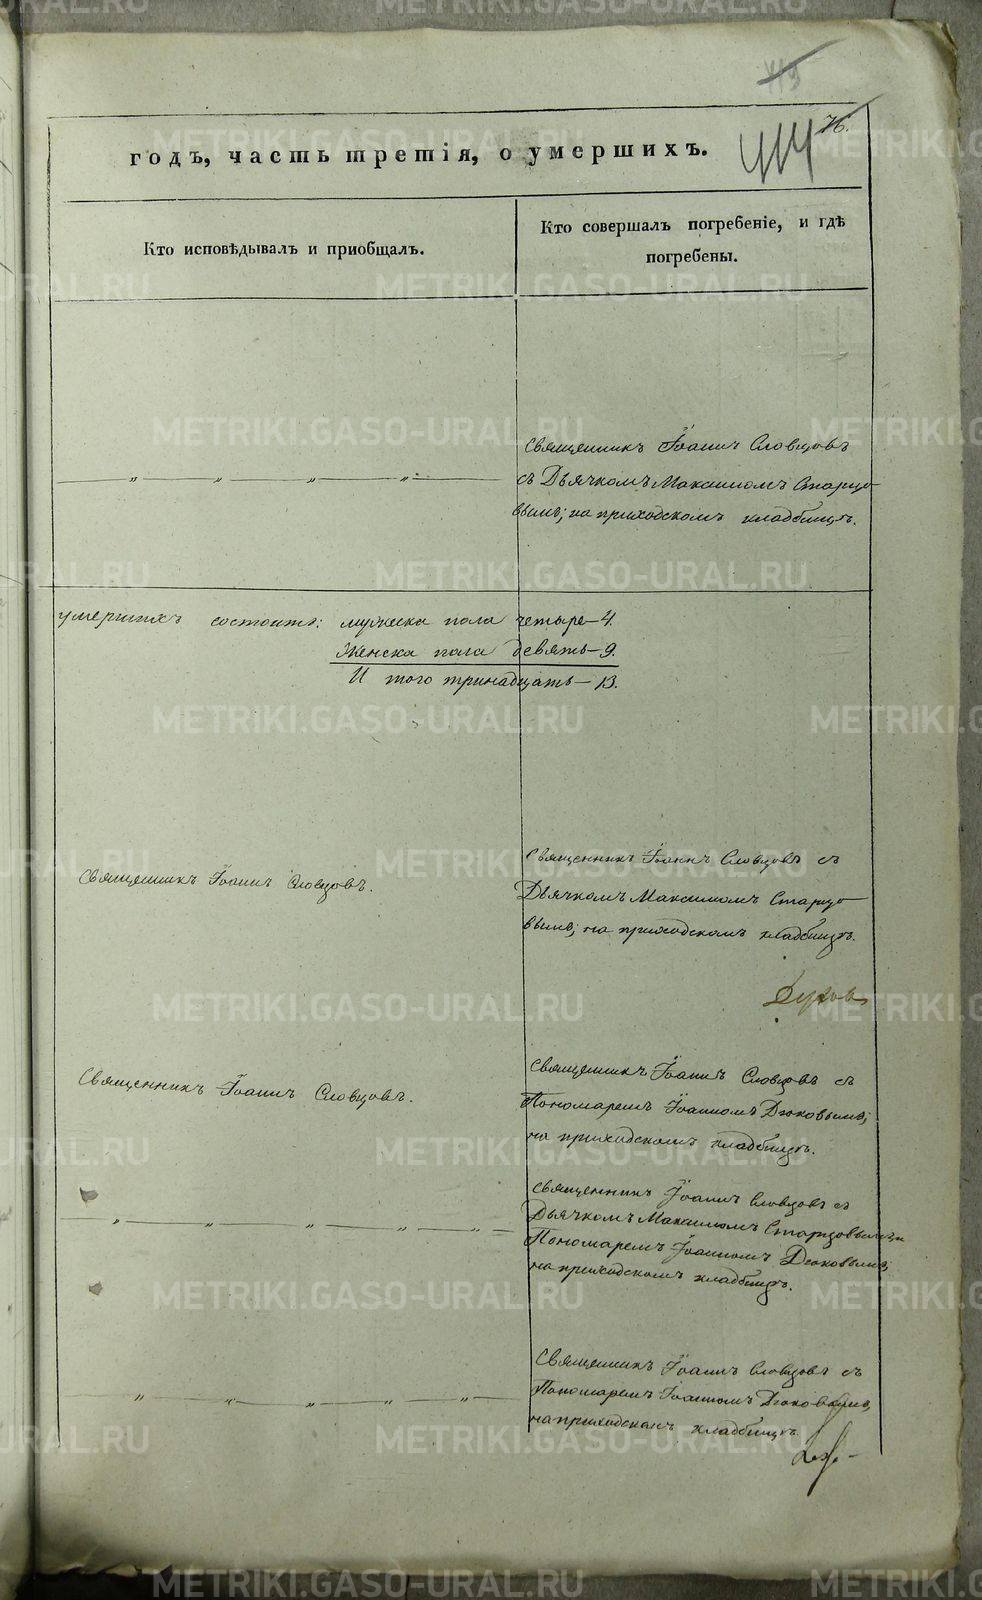 76.
414
годъ, часть третія, о умершихъ.
Кто исповѣдывалъ и приобщалъ.
Кто совершалъ погребеніе, и гдѣ
погребены.
Священникъ Іоаннъ Словцовъ
съ Дьячкомъ Максимомъ Старцо-
вымъ; на приходскомъ кладбищѣ.
умершихъ состоитъ: мужеска пола четыре — 4.
Женска пола девять — 9.
И того тринадцать — 13.
Священникъ Іоаннъ Словцовъ.
Священникъ Іоаннъ Словцовъ съ
Дьячкомъ Максимомъ Старцо-
вымъ; на приходскомъ кладбищѣ.
Священникъ Іоаннъ Словцовъ.
Священникъ Іоаннъ Словцовъ съ
Пономаремъ Іоанномъ
на приходскомъ кладбищѣ.
Священникъ Іоаннъ Словцовъ съ
Дьячкомъ Максимомъ Старцовымъ и
Пономаремъ Іоанномъ
на приходскомъ кладбищѣ.
Священникъ Іоаннъ Словцовъ съ
Пономаремъ Іоанномъ
на приходскомъ кладбищѣ.
METRIKI.GASO-URAL.RU